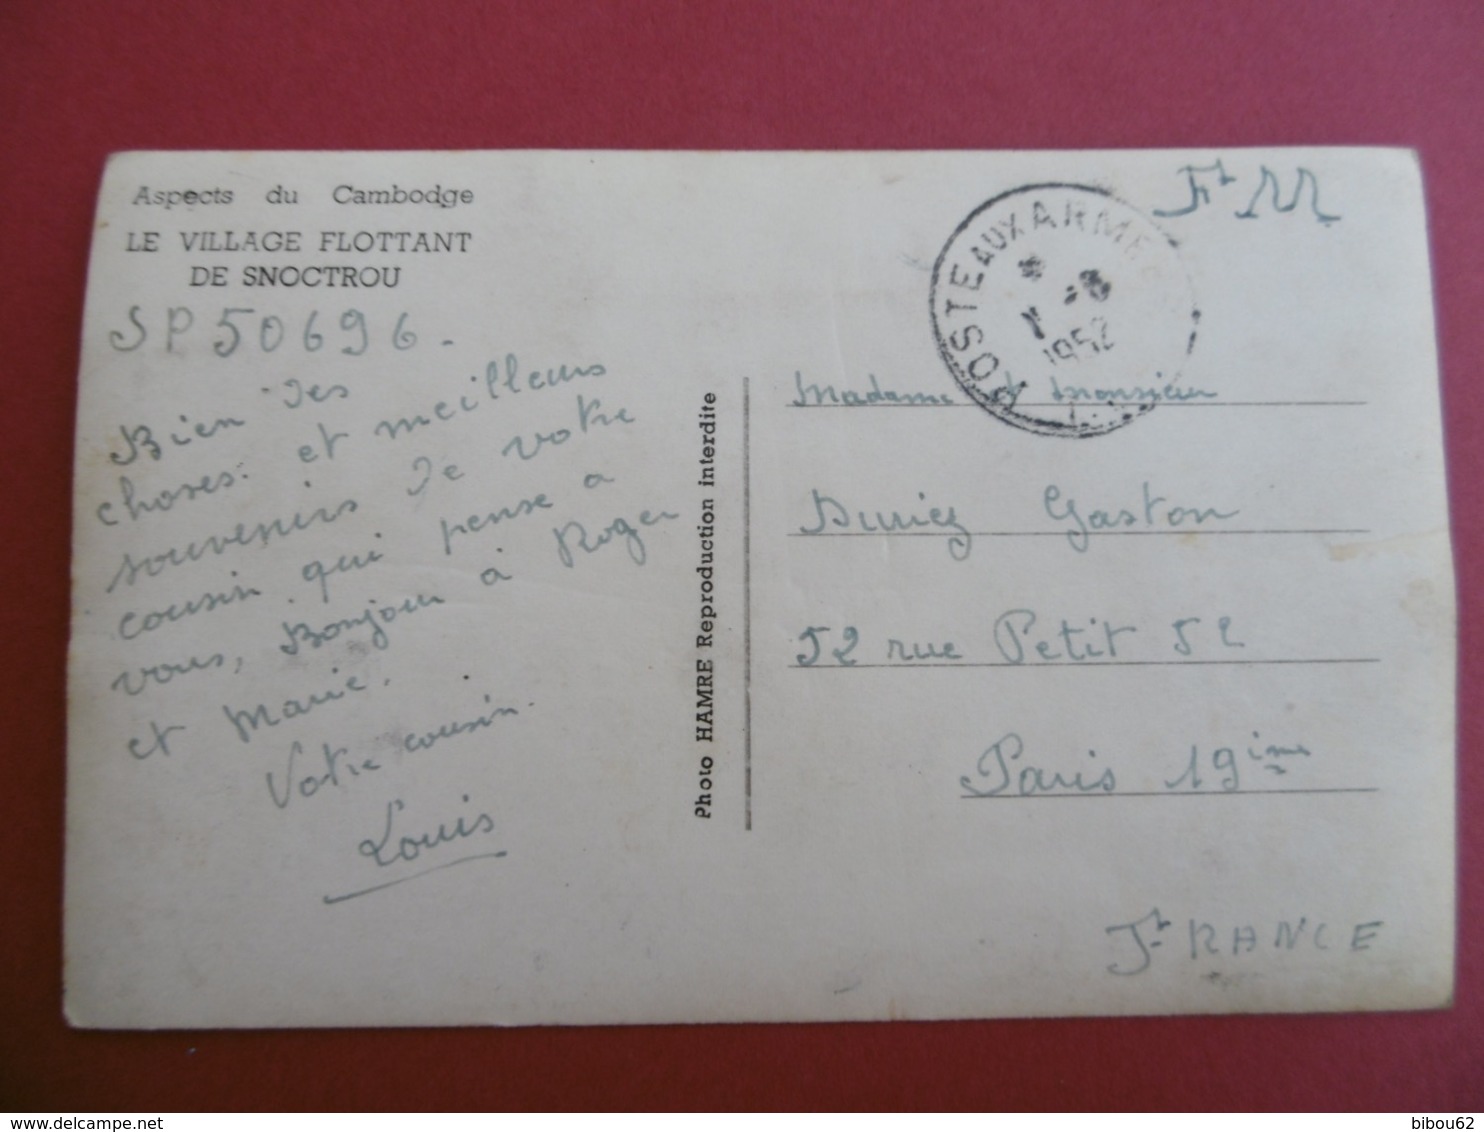 Aspects du Cambodge
LE VILLAGE FLOTTANT
DE SNOCTROU
SP 50696.
Bien des
choses. et meilleurs
souvenirs de votre
cousin qui pense a
vous, Bonjour à Roger
et Marie.
Votre cousin.
Louis
Photo HAMRE Reproduction interdite
POSTE AUX ARMEES
1952
FM
Madame & Monsieur
Duriez Gaston
52 rue Petit 52
Paris 19ième
FRANCE
delcampe.net
bibou62